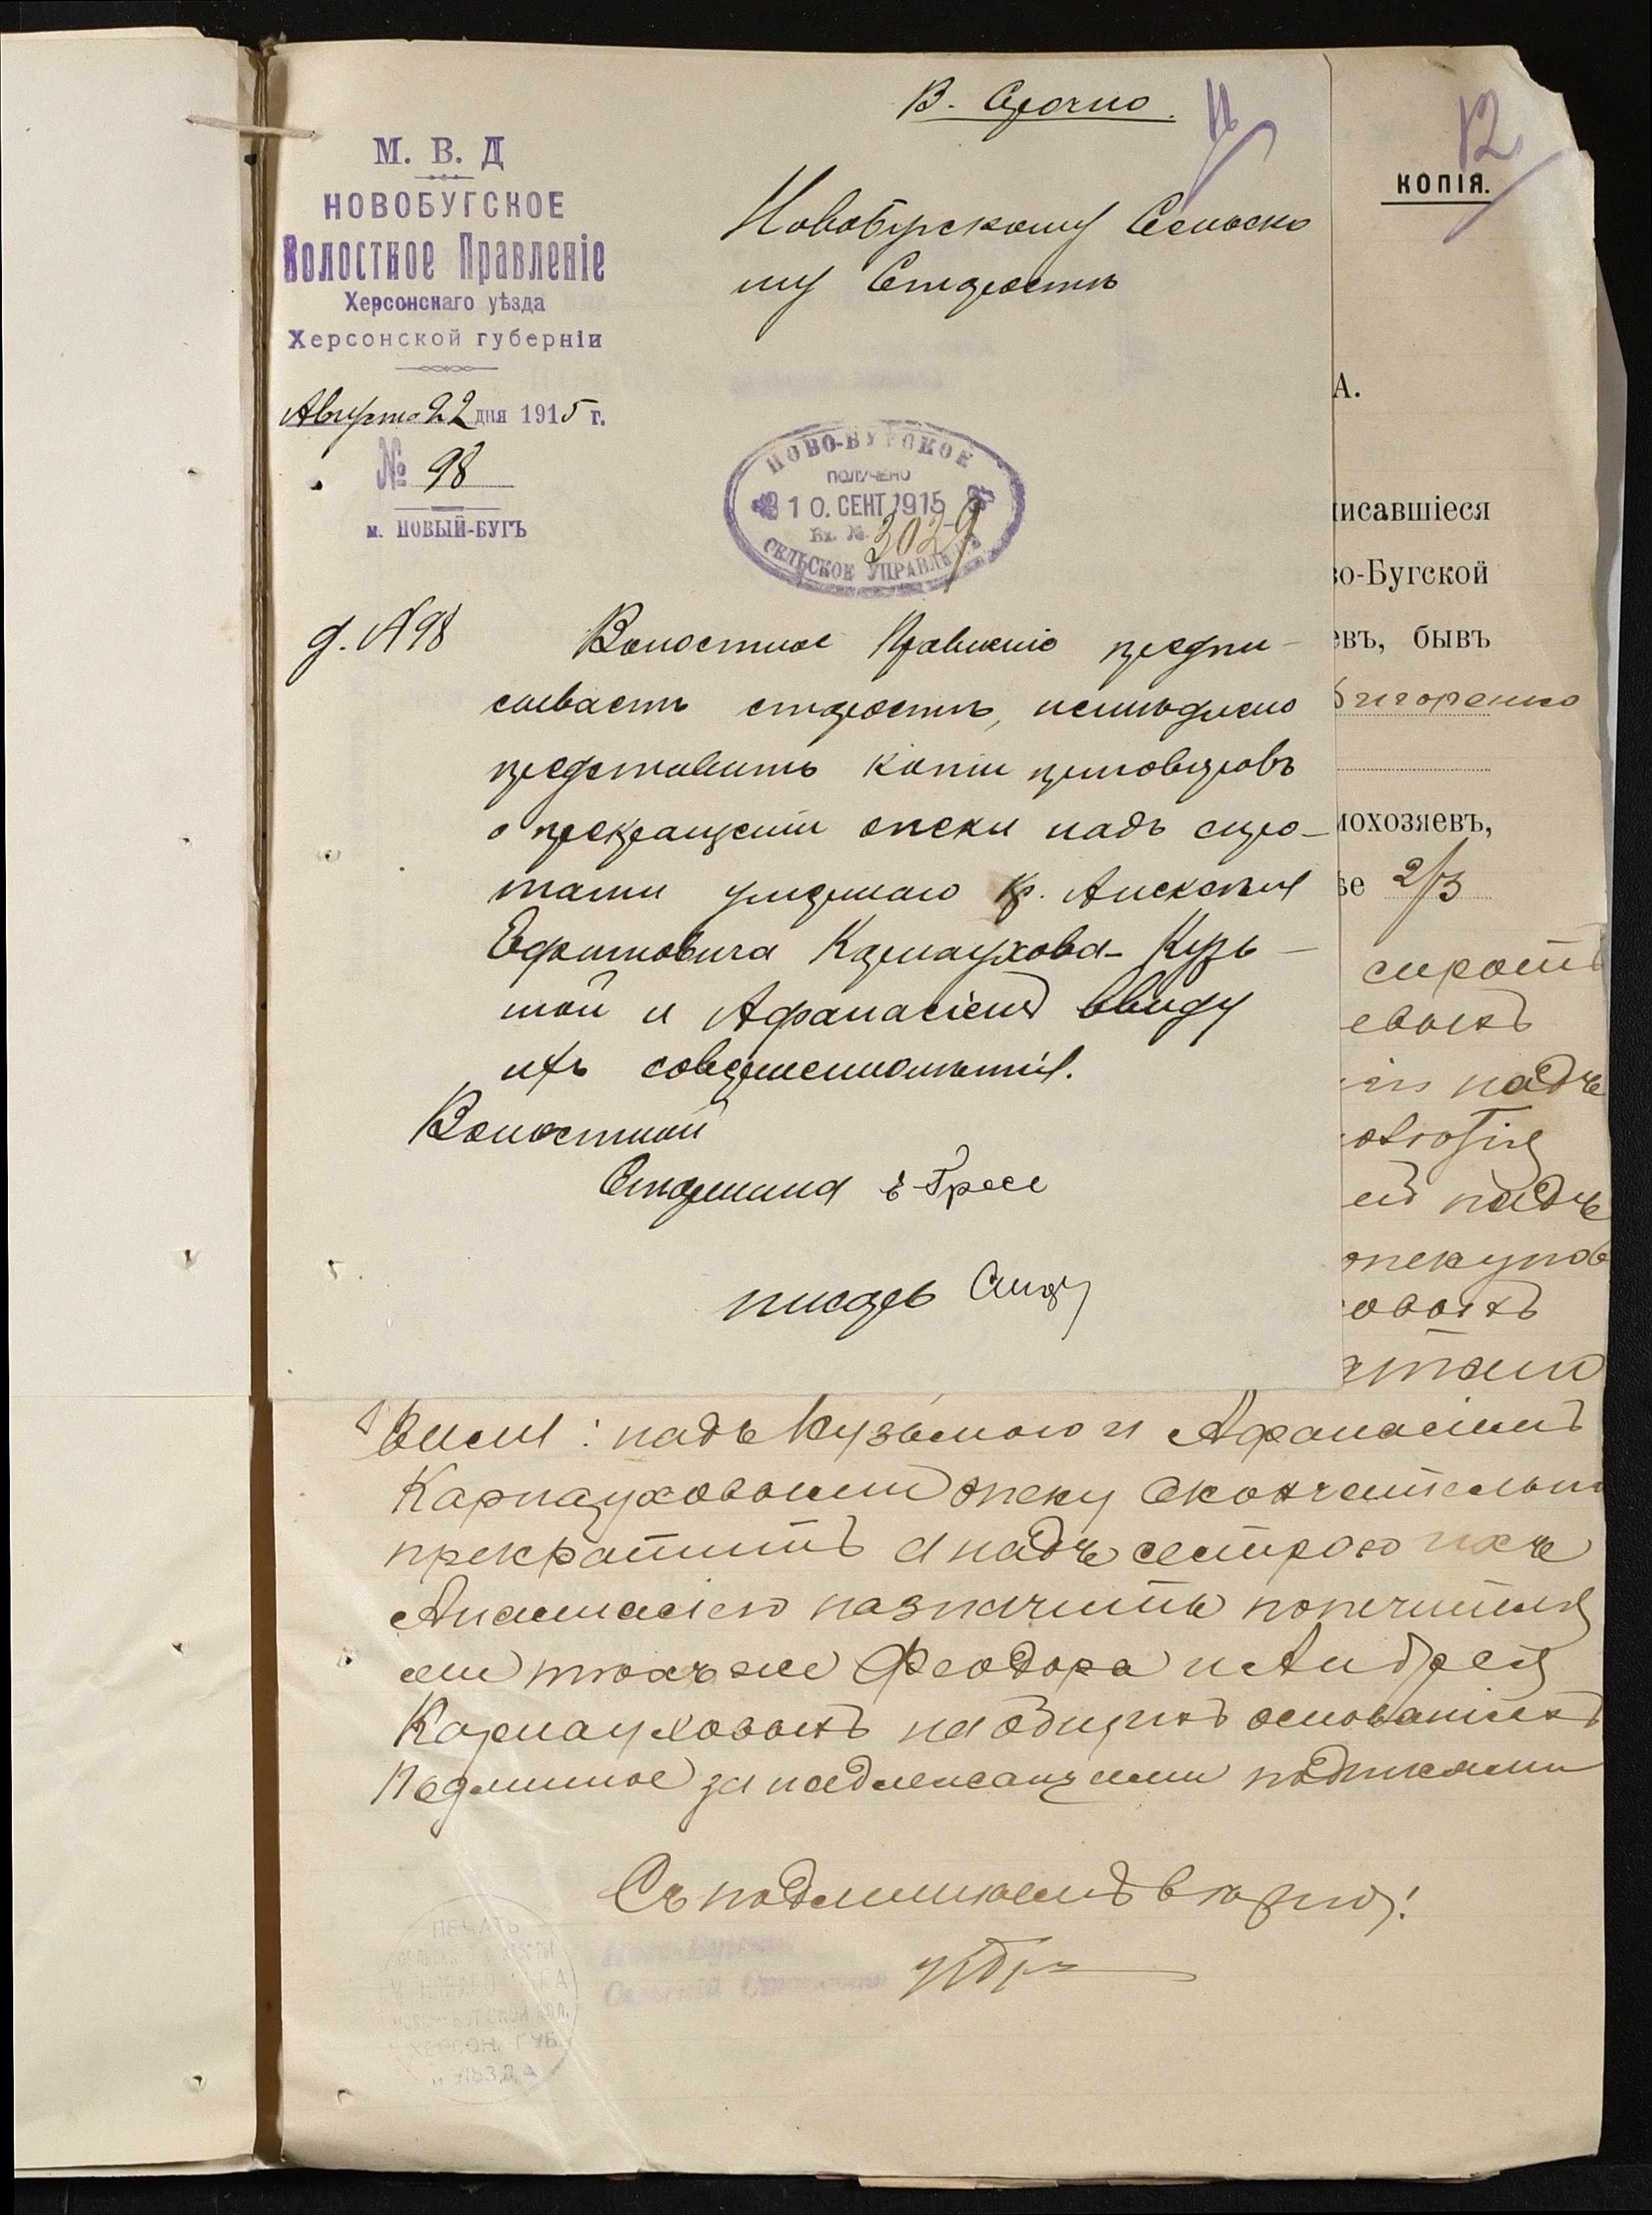 В. Срочно.
11
12
КОПІЯ.
М. В. Д
НОВОБУГСКОЕ
Волостное Правленіе
Херсонскаго уѣзда
Херсонской губерніи
Августа 22 дня 1915 г.
№ 98
м. НОВЫЙ-БУГЪ
Новобугскому Сельско
му Старостѣ
НОВО-БУГСКОЕ
ПОЛУЧЕНО
10. СЕНТ 1915
Вх. №. 3029
СЕЛЬСКОЕ УПРАВЛЕНІЕ
д. № 98
Волостное Правленіе предпи-
сываетъ старостѣ, немѣдлено
представить копіи приговоровъ
о прекращеніи опеки надъ сиро-
тами умершаго кр. Алексѣя
Ефимовича Карнаухова - Кузь-
мой и Афанасіемъ ввиду
ихъ совершеннолѣтія.
Волостной
Старшина
писарь
А.
исавшіеся
во-Бугской
евъ, бывъ
Григоренко
мохозяевъ,
ѣе 2/3
сиротъ
евыхъ
надъ
надъ
опекуновъ
овыхъ
вили: надъ Кузьмою и Афанасіемъ
Карнауховыми опеку окончательно
прекратить а надъ сестрою ихъ
Анастасіею назначить попечителя
ми тѣхъ же Феодора и Андрея
Карнауховыхъ на общихъ основаніяхъ
Подлинное за надлежащими подписями
Съ подлиннымъ вѣрно!
Ново-Бугскій
Сельскій Староста
ПЕЧАТЬ
ХЕРСОН. ГУБ.
УѢЗДА